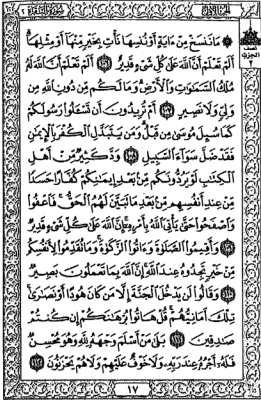 سورة البقرة
الجزء الأول
نصف
الحزب
٢
۞ مَا نَنسَخْ مِنْ ءَايَةٍ أَوْ نُنسِهَا نَأْتِ بِخَيْرٍ مِّنْهَآ أَوْ مِثْلِهَآ
أَلَمْ تَعْلَمْ أَنَّ ٱللَّهَ عَلَىٰ كُلِّ شَىْءٍ قَدِيرٌ ١٠٦ أَلَمْ تَعْلَمْ أَنَّ ٱللَّهَ لَهُۥ
مُلْكُ ٱلسَّمَٰوَٰتِ وَٱلْأَرْضِ وَمَا لَكُم مِّن دُونِ ٱللَّهِ مِن
وَلِىٍّ وَلَا نَصِيرٍ ١٠٧ أَمْ تُرِيدُونَ أَن تَسْـَٔلُوا۟ رَسُولَكُمْ
كَمَا سُئِلَ مُوسَىٰ مِن قَبْلُ وَمَن يَتَبَدَّلِ ٱلْكُفْرَ بِٱلْإِيمَٰنِ
فَقَدْ ضَلَّ سَوَآءَ ٱلسَّبِيلِ ١٠٨ وَدَّ كَثِيرٌ مِّنْ أَهْلِ
ٱلْكِتَٰبِ لَوْ يَرُدُّونَكُم مِّنۢ بَعْدِ إِيمَٰنِكُمْ كُفَّارًا حَسَدًا
مِّنْ عِندِ أَنفُسِهِم مِّنۢ بَعْدِ مَا تَبَيَّنَ لَهُمُ ٱلْحَقُّ فَٱعْفُوا۟
وَٱصْفَحُوا۟ حَتَّىٰ يَأْتِىَ ٱللَّهُ بِأَمْرِهِۦٓ إِنَّ ٱللَّهَ عَلَىٰ كُلِّ شَىْءٍ قَدِيرٌ
١٠٩ وَأَقِيمُوا۟ ٱلصَّلَوٰةَ وَءَاتُوا۟ ٱلزَّكَوٰةَ وَمَا تُقَدِّمُوا۟ لِأَنفُسِكُم
مِّنْ خَيْرٍ تَجِدُوهُ عِندَ ٱللَّهِ إِنَّ ٱللَّهَ بِمَا تَعْمَلُونَ بَصِيرٌ
١١٠ وَقَالُوا۟ لَن يَدْخُلَ ٱلْجَنَّةَ إِلَّا مَن كَانَ هُودًا أَوْ نَصَٰرَىٰ
تِلْكَ أَمَانِيُّهُمْ قُلْ هَاتُوا۟ بُرْهَٰنَكُمْ إِن كُنتُمْ
صَٰدِقِينَ ١١١ بَلَىٰ مَنْ أَسْلَمَ وَجْهَهُۥ لِلَّهِ وَهُوَ مُحْسِنٌ
فَلَهُۥٓ أَجْرُهُۥ عِندَ رَبِّهِۦ وَلَا خَوْفٌ عَلَيْهِمْ وَلَا هُمْ يَحْزَنُونَ ١١٢
١٧